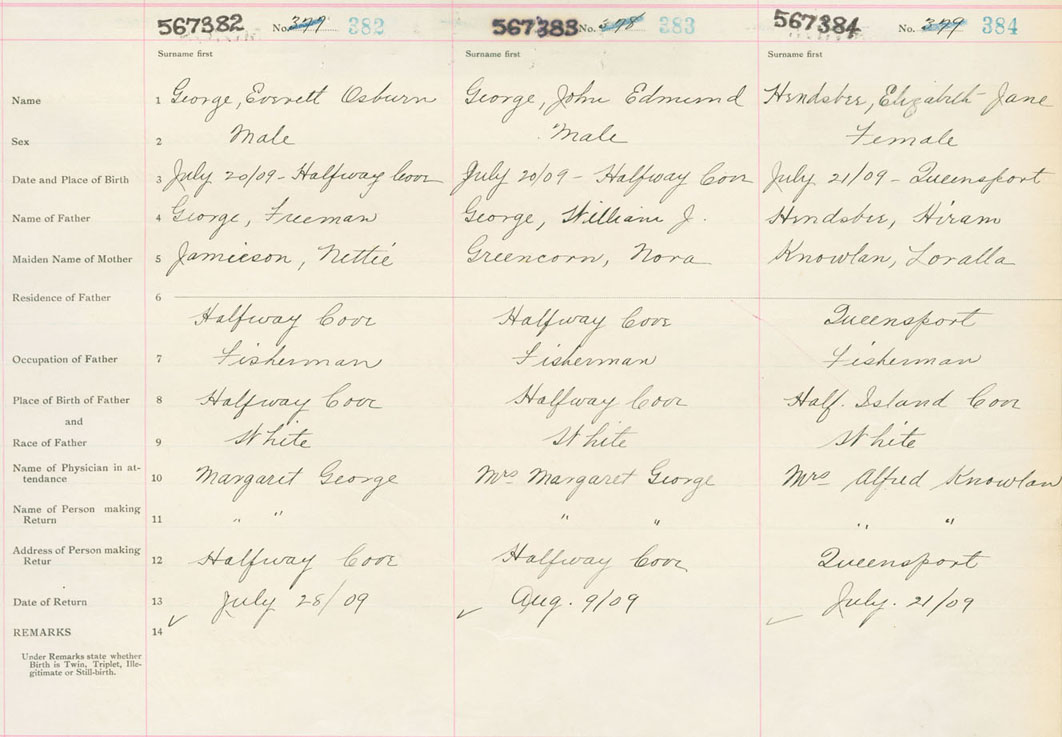 567382 No. 377 382 567383 No. 378 383 567384 No. 379 384
Surname first Surname first Surname first
Name 1 George, Everett Osburn George, John Edmund Hendsbee, Elizabeth Jane
Sex 2 Male Male Female
Date and Place of Birth 3 July 20/09 - Halfway Cove July 20/09 - Halfway Cove July 21/09 - Queensport
Name of Father 4 George, Freeman George, William J. Hendsbee, Hiram
Maiden Name of Mother 5 Jamieson, Nettie Greencorn, Nora Knowlan, Loralla
Residence of Father 6
Halfway Cove Halfway Cove Queensport
Occupation of Father 7 Fisherman Fisherman Fisherman
Place of Birth of Father 8 Halfway Cove Halfway Cove Half. Island Cove
and
Race of Father 9 White White White
Name of Physician in at-
tendance 10 Margaret George Mrs Margaret George Mrs Alfred Knowlan
Name of Person making
Return 11 " " " " " "
Address of Person making
Retur 12 Halfway Cove Halfway Cove Queensport
Date of Return 13 July 28/09 Aug. 9/09 July. 21/09
REMARKS 14
Under Remarks state whether
Birth is Twin, Triplet, Ille-
gitimate or Still-birth.